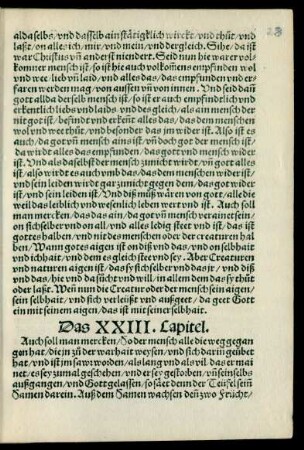 23
alda selbs, vnd dasselb ain stätigklich würckt/vnd thůt/vnd
laßt/on alles ich/mir/vnd mein/vnd dergleich. Sihe/da ist
war Christus vñ anderst niendert. Seid nun hie warer vol-
komner mensch ist/so ist hie auch volkom̃ens empfinden wol
vnd wee/lieb vñ laid/vnd alles das/das empfunden vnd er-
faren werden mag/von aussen vñ von innen. Vnd seid dañ
gott all da der selb mensch ist/so ist er auch empfindtlich vnd
erkentlich liebs vnd laids/vnd des gleich/als ain mensch der
nit got ist/befindt vnd erkent alles das/das dem menschen
wol vnd wee thůt/vnd besonder das jm wider ist. Also ist es
auch/da got vñ mensch ains ist/vñ doch got der mensch ist/
da wirdt alles das empfunden/das gott vñ mensch wider
ist. Vnd als da selbst der mensch zů nicht wirdt/vñ gott alles
ist/also wirt es auch vmb das/das dem menschen wider ist/
vnd sein leiden wirdt gar zů nicht gegen dem/das got wider
ist/vnd sein leiden ist. Vnd diß můß wären von gott/alle die
weil das leiblich vnd wesenlich leben wert vnd ist. Auch soll
man mercken/das das ain/da got vñ mensch veraint ist ein/
on sich selber vnd on all/vnd alles ledig steet vnd ist/das ist
gottes halben/vnd nit des menschen oder der creaturen hal-
ben/Wann gottes aigen ist on diß vnd das/vnd on selbhait
vnd ichhait/vnd dem es gleich steet vnd sey. Aber Creaturen
vnd naturen aigen ist/das sy sich selber vnd das jr/vnd diß
vnd das/hie vnd da sůcht vnd will/in allem dem das sy thůt
oder laßt. Wen̄ nun die Creatur oder der mensch sein aigen/
sein selbhait/vnd sich verleüßt vnd außgeet/da geet Gott
ein mit seinem aigen/das ist mit seiner selbhait.
Das XXIII. Capitel.
Auch soll man mercken/So der mensch alle die weg gegan
gen hat/die jn zů der warhait weysen/vnd sich darin geübet
hat/vnd ist jm sawr worden/als lang vnd als vil das er mai
net/es sey zumal geschehen/vnd er sey gestorben/vñ sein selbs
außgangen/vnd Gott gelassen/so säet denn der Teüfel sein
Samen darein. Auß dem Samen wachsen deñ zwo Frücht/